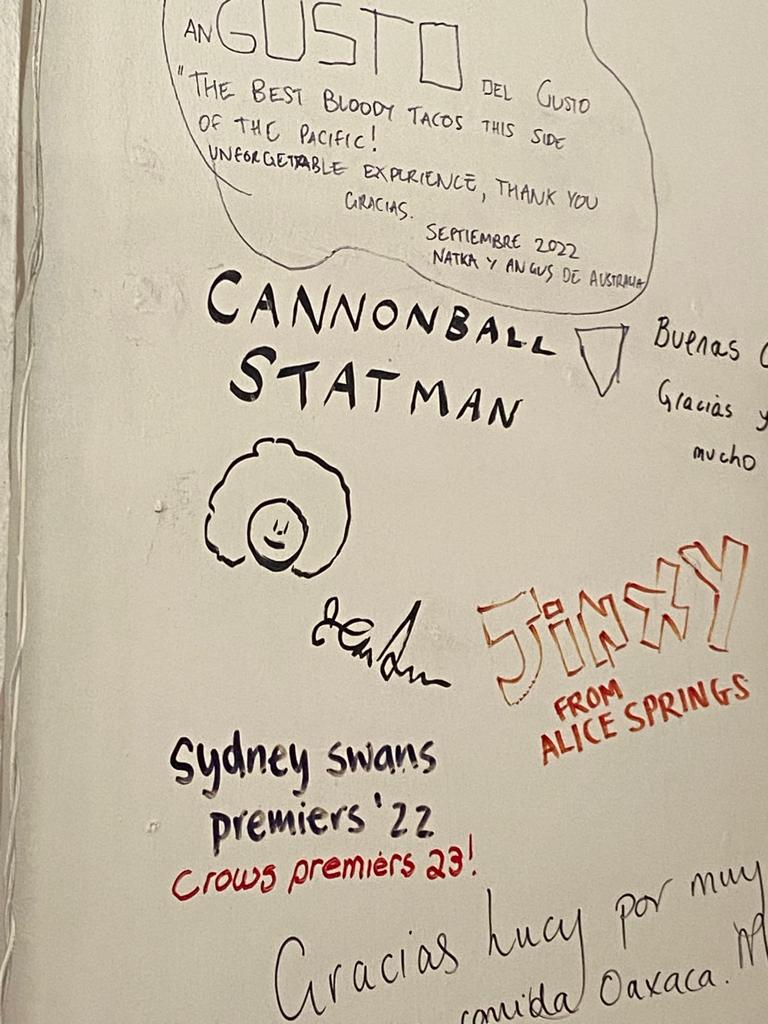 AN GUSTO DEL GUSTO
"THE BEST BLOODY TACOS THIS SIDE
OF THE PACIFIC!
UNFORGETTABLE EXPERIENCE, THANK YOU
GRACIAS.
SEPTIEMBRE 2022
NATKA Y ANGUS DE AUSTRALIA
CANNONBALL
STATMAN
Buenas
Gracias y
mucho
JiNXY
FROM
ALICE SPRINGS
Sydney swans
premiers '22
Crows premiers 23!
Gracias Lucy por muy
comida Oaxaca.